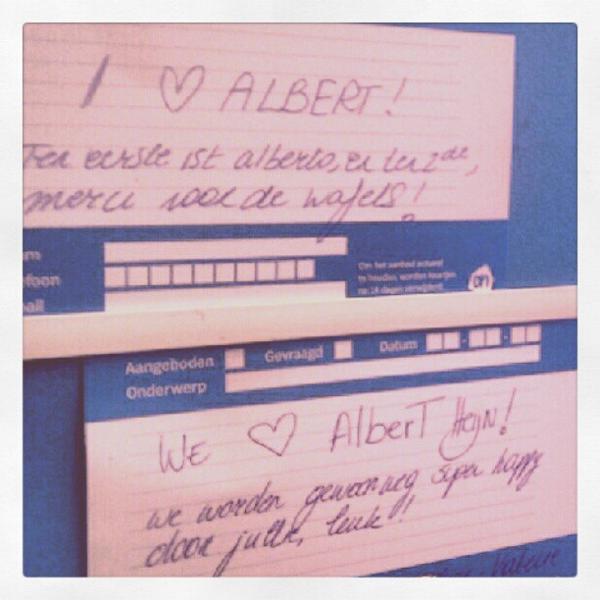 I ♡ ALBERT!
Ten eerste ist alberto, en ten 2de,
merci voor de wafels!
Om het aanbod actueel
te houden, worden kaartjes
na 14 dagen verwijderd.
ah
Aangeboden Gevraagd Datum
Onderwerp
WE ♡ AlberT HeijN!
we worden gewoonweg super happy
door jullie, leuk!!